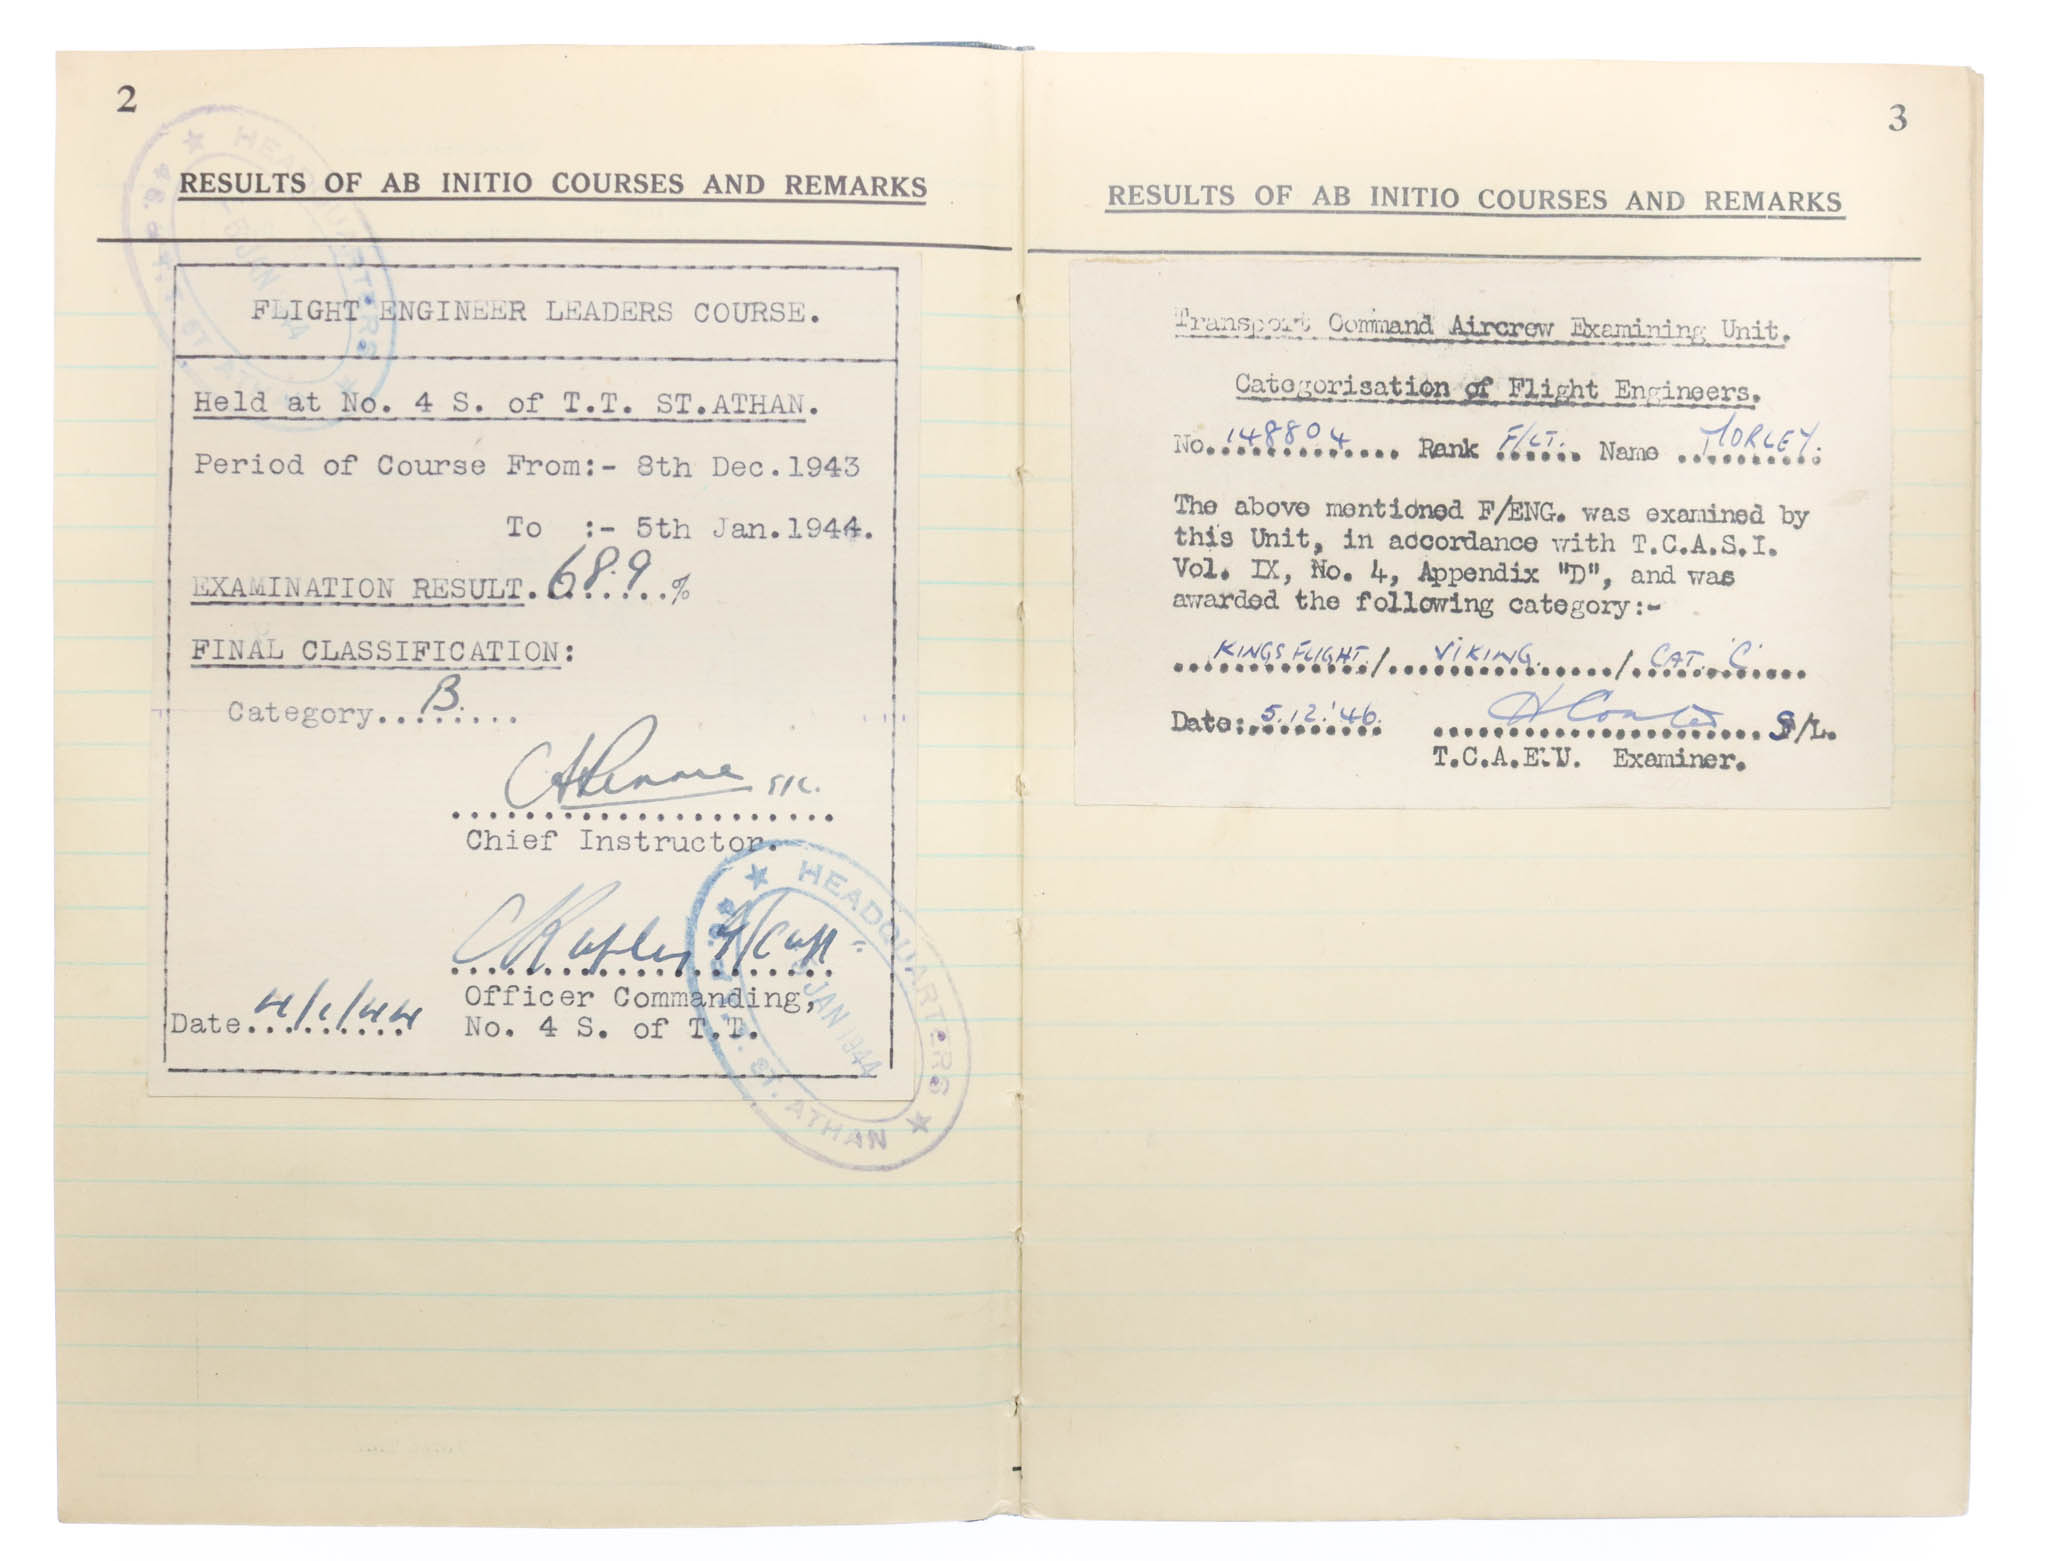 2
RESULTS OF AB INITIO COURSES AND REMARKS
FLIGHT ENGINEER LEADERS COURSE.
Held at No. 4 S. of T.T. ST.ATHAN.
Period of Course From:- 8th Dec.1943
To :- 5th Jan.1944.
EXAMINATION RESULT. 68.9 %
FINAL CLASSIFICATION:
Category.. B .....
Chief Instructor.
Officer Commanding,
Date 4/1/44 No. 4 S. of T.T.
HEADQUARTERS
JAN 1944
ST. ATHAN
HEADQUARTERS
JAN 1944
ST. ATHAN
3
RESULTS OF AB INITIO COURSES AND REMARKS
Transport Command Aircrew Examining Unit.
Categorisation of Flight Engineers.
No. 148804 Rank F/LT. Name MORLEY.
The above mentioned F/ENG. was examined by
this Unit, in accordance with T.C.A.S.I.
Vol. IX, No. 4, Appendix "D", and was
awarded the following category:-
KINGS FLIGHT / VIKING. / CAT. 'C'
Date: 5.12.'46. S/L.
T.C.A.E.U. Examiner.